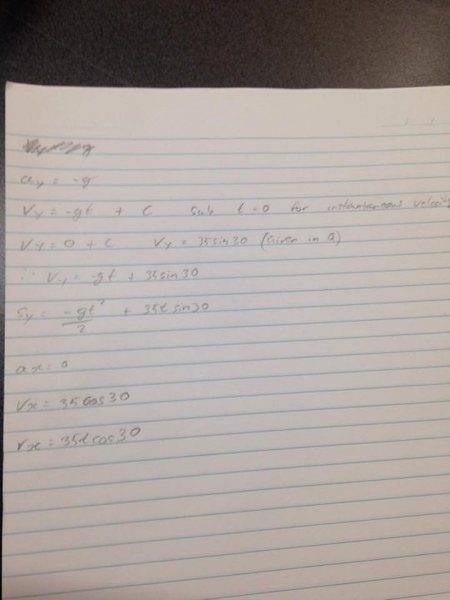 ay = -g
Vy = -gt + C sub t=0 for instantaneous velocity
Vy = 0 + C Vy = 35sin30 (Given in Q)
∴ Vy = -gt + 35sin30
Sy = -gt²/2 + 35t sin30
ax = 0
Vx = 35cos30
Vx = 35t cos30